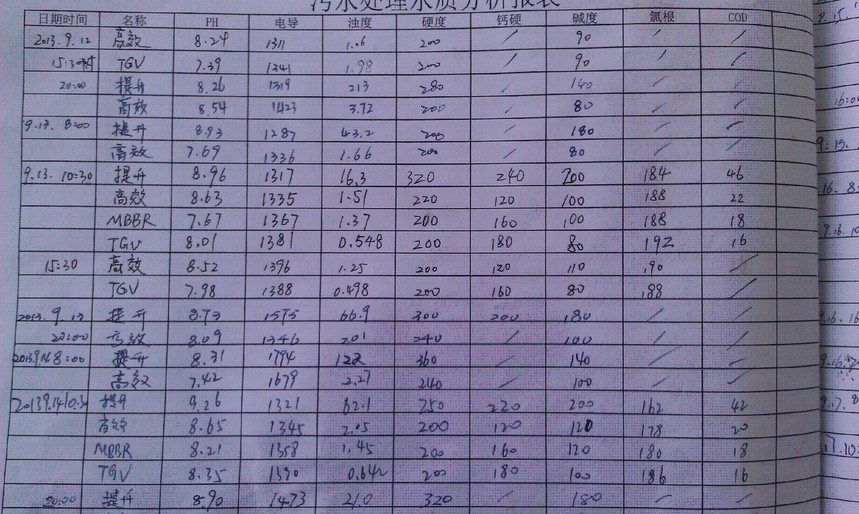 污水处理水质分析报表
日期时间 名称 PH 电导 浊度 硬度 钙硬 碱度 氯根 COD
2013.9.12 高效 8.24 1311 1.06 200 / 90 / /
15:30时 TGV 7.39 1341 1.98 200 / 90 / /
20:00 提升 8.26 1319 213 280 / 140 / /
高效 8.54 1423 3.72 200 / 80 / /
9.13. 8:00 提升 8.93 1287 43.2 200 / 180 / /
高效 7.69 1336 1.66 200 / 80 / /
9.13. 10:30 提升 8.96 1317 16.3 320 240 200 184 46
高效 8.63 1335 1.51 220 120 100 188 22
MBBR 7.67 1367 1.37 200 160 100 188 18
TGV 8.01 1381 0.548 200 180 80 192 16
15:30 高效 8.52 1396 1.25 200 120 110 190 /
TGV 7.98 1388 0.498 200 160 80 188 /
2013.9.13 提升 8.73 1575 66.9 300 200 180 / /
20:00 高效 8.09 1346 2.01 240 / 100 / /
2013.9.14 8:00 提升 8.31 1794 122 360 / 140 / /
高效 7.42 1679 2.27 240 / 100 / /
2013.9.14 10:30 提升 9.26 1321 62.1 750 220 200 162 42
高效 8.65 1345 2.05 200 120 120 178 20
MBBR 8.21 1358 1.45 200 160 120 180 18
TGV 8.35 1390 0.642 200 180 100 186 16
20:00 提升 8.90 1473 21.0 320 / 180 / /